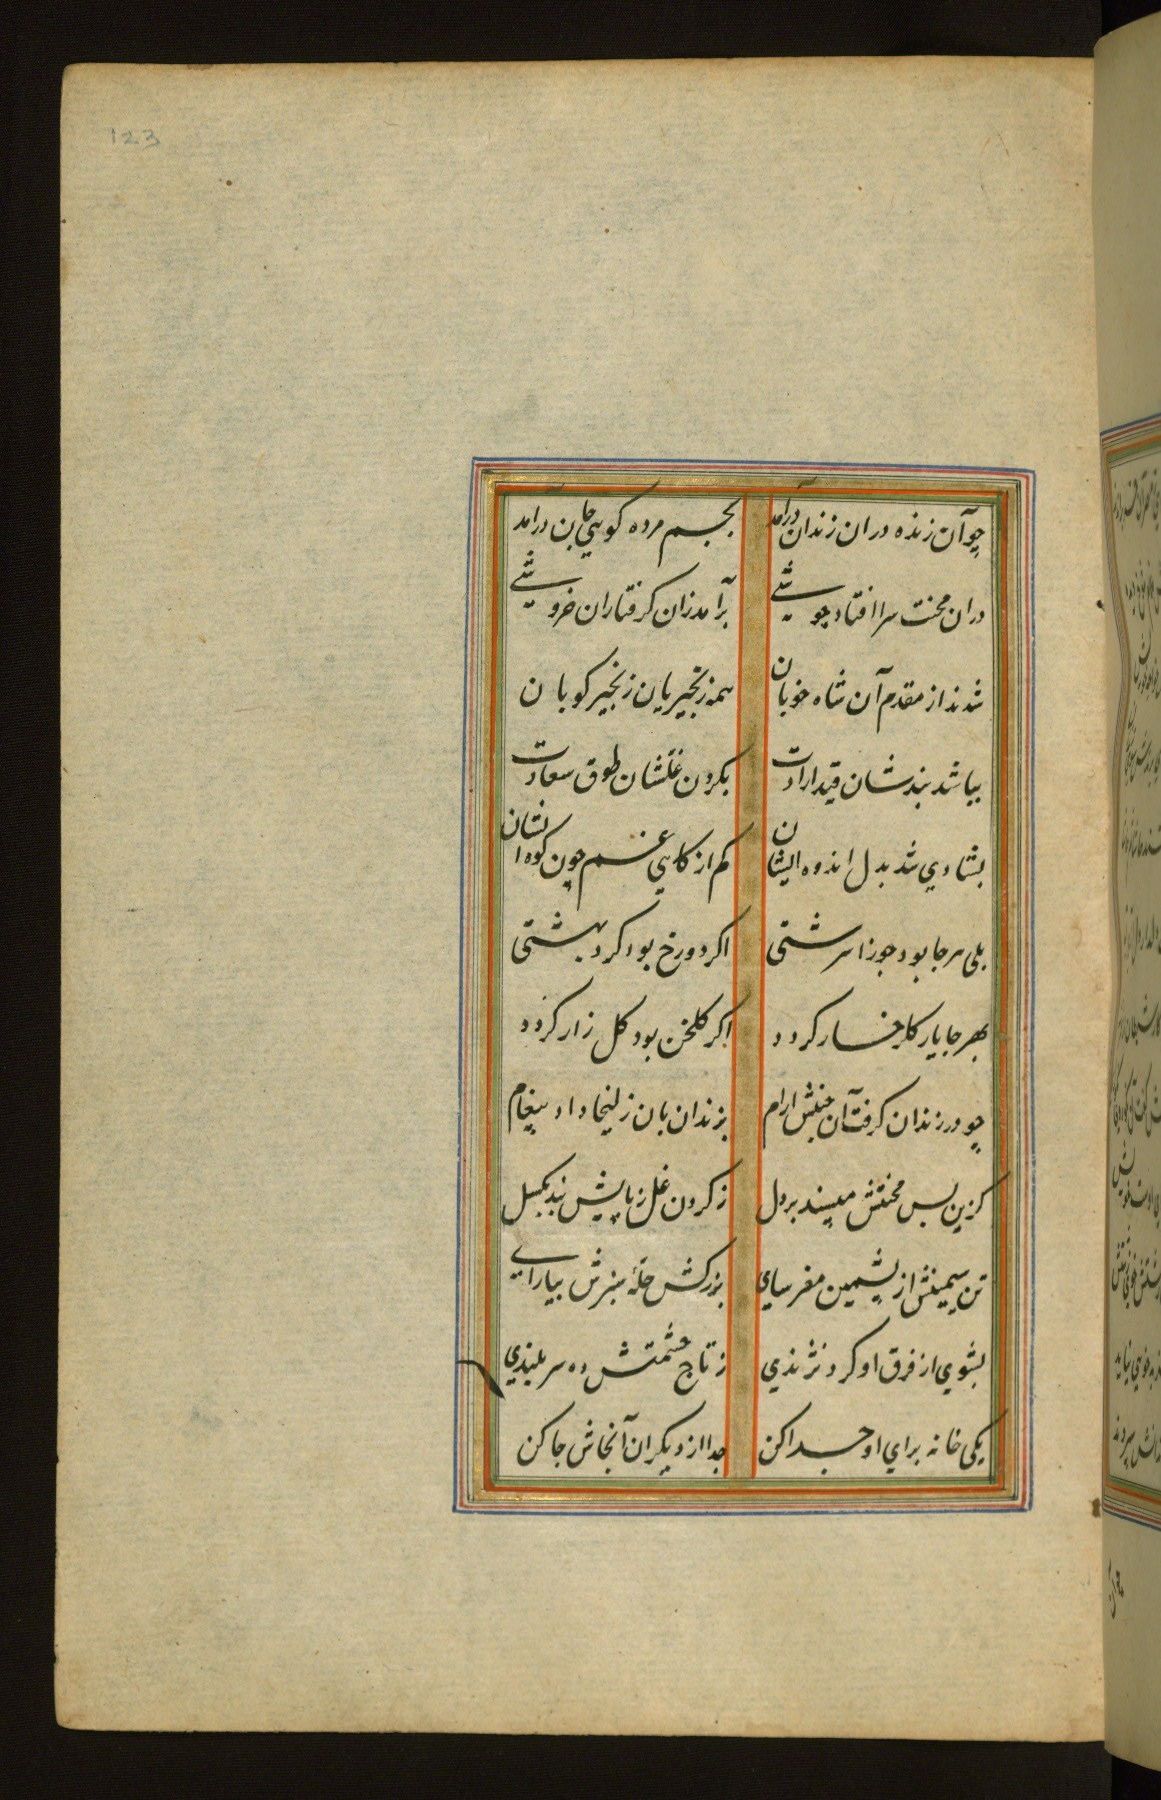 123
چو آن زنده دران زندان درآمد بجسم مرده کویی جان درآمد
دران محنت سرا افتاد جوشی برآمد زان کرفتاران خروشی
شدند از مقدم آن شاه خوبان همه زنجیریان زنجیر کوبان
بپا شد بندشان قید ارادت بکردن غلشان طوق سعادت
بشادی شد بدل اندوه ایشان کم از کاهی غم چون کوه ایشان
بلی هر جا بود حورا سرشتی اکر دوزخ بود کردد بهشتی
بهر جا یار کلرخسار کردد اکر کلخن بود کلزار کردد
چو در زندان کرفت آن جنبش ارام بزندان بان زلیخا داد پیغام
کزین پس محنتش مپسند بر دل ز کردن غل ز پایش بند بکسل
تن سیمینش از پشمین مفرسای بزرکش حلهٔ سبزش بیارای
بشوی از فرق او کرد نژندی ز تاج حشمتش ده سربلندی
یکی خانه برای او جدا کن جدا از دیکران آنجاش جا کن